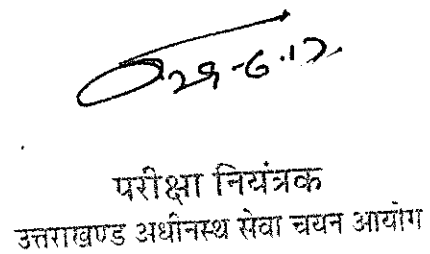 29-6-17
परीक्षा नियंत्रक
उत्तराखण्ड अधीनस्थ सेवा चयन आयोग